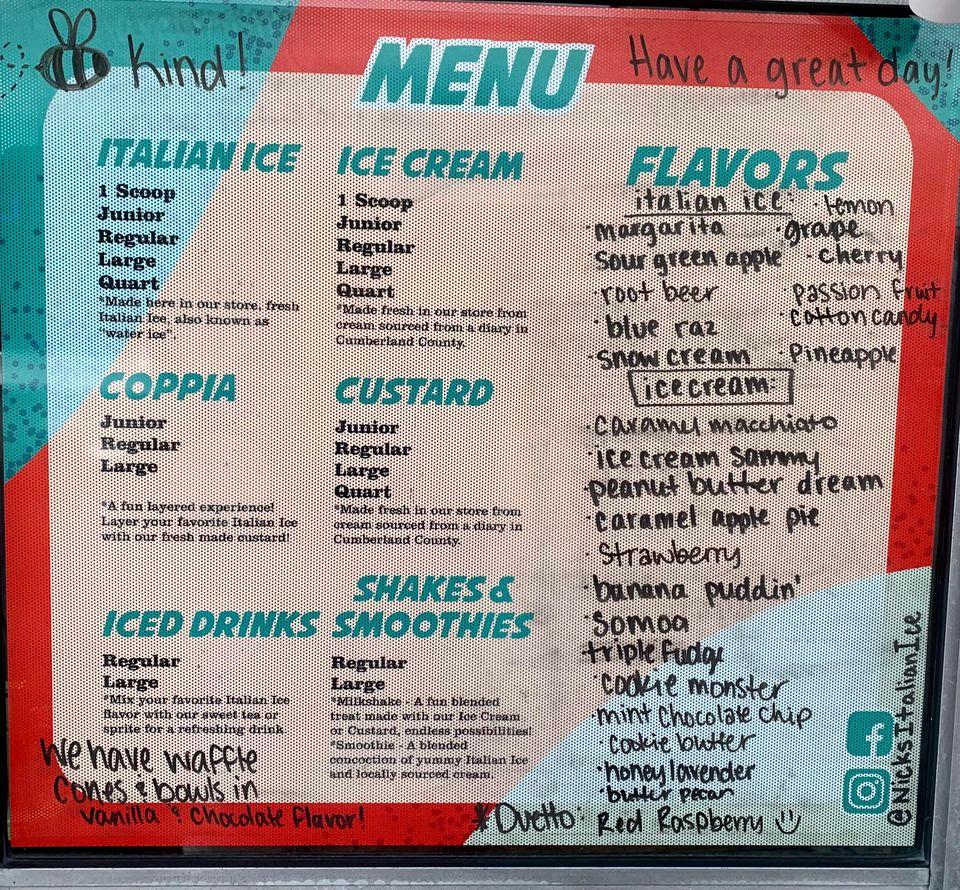 Kind!
MENU
Have a great day!
ITALIAN ICE
1 Scoop
Junior
Regular
Large
Quart
*Made here in our store, fresh
Italian Ice, also known as
"water ice".
ICE CREAM
1 Scoop
Junior
Regular
Large
Quart
*Made fresh in our store from
cream sourced from a diary in
Cumberland County.
COPPIA
Junior
Regular
Large
*A fun layered experience!
Layer your favorite Italian Ice
with our fresh made custard!
CUSTARD
Junior
Regular
Large
Quart
*Made fresh in our store from
cream sourced from a diary in
Cumberland County.
ICED DRINKS
Regular
Large
*Mix your favorite Italian Ice
flavor with our sweet tea or
sprite for a refreshing drink
SHAKES &
SMOOTHIES
Regular
Large
*Milkshake - A fun blended
treat made with our Ice Cream
or Custard, endless possibilities!
*Smoothie - A blended
concoction of yummy Italian Ice
and locally sourced cream
We have waffle
cones & bowls in
vanilla & chocolate flavor!
FLAVORS
italian ice: · lemon
· margarita · grape
sour green apple · cherry
· root beer passion fruit
· blue raz · cotton candy
· snow cream · Pineapple
ice cream:
· caramel macchiato
· ice cream sammy
· peanut butter dream
· caramel apple pie
· Strawberry
· banana puddin'
· Somoa
· triple fudge
· cookie monster
· mint chocolate chip
· cookie butter
· honey lavender
· butter pecan
* Duetto: Red Raspberry
@NicksItalianIce